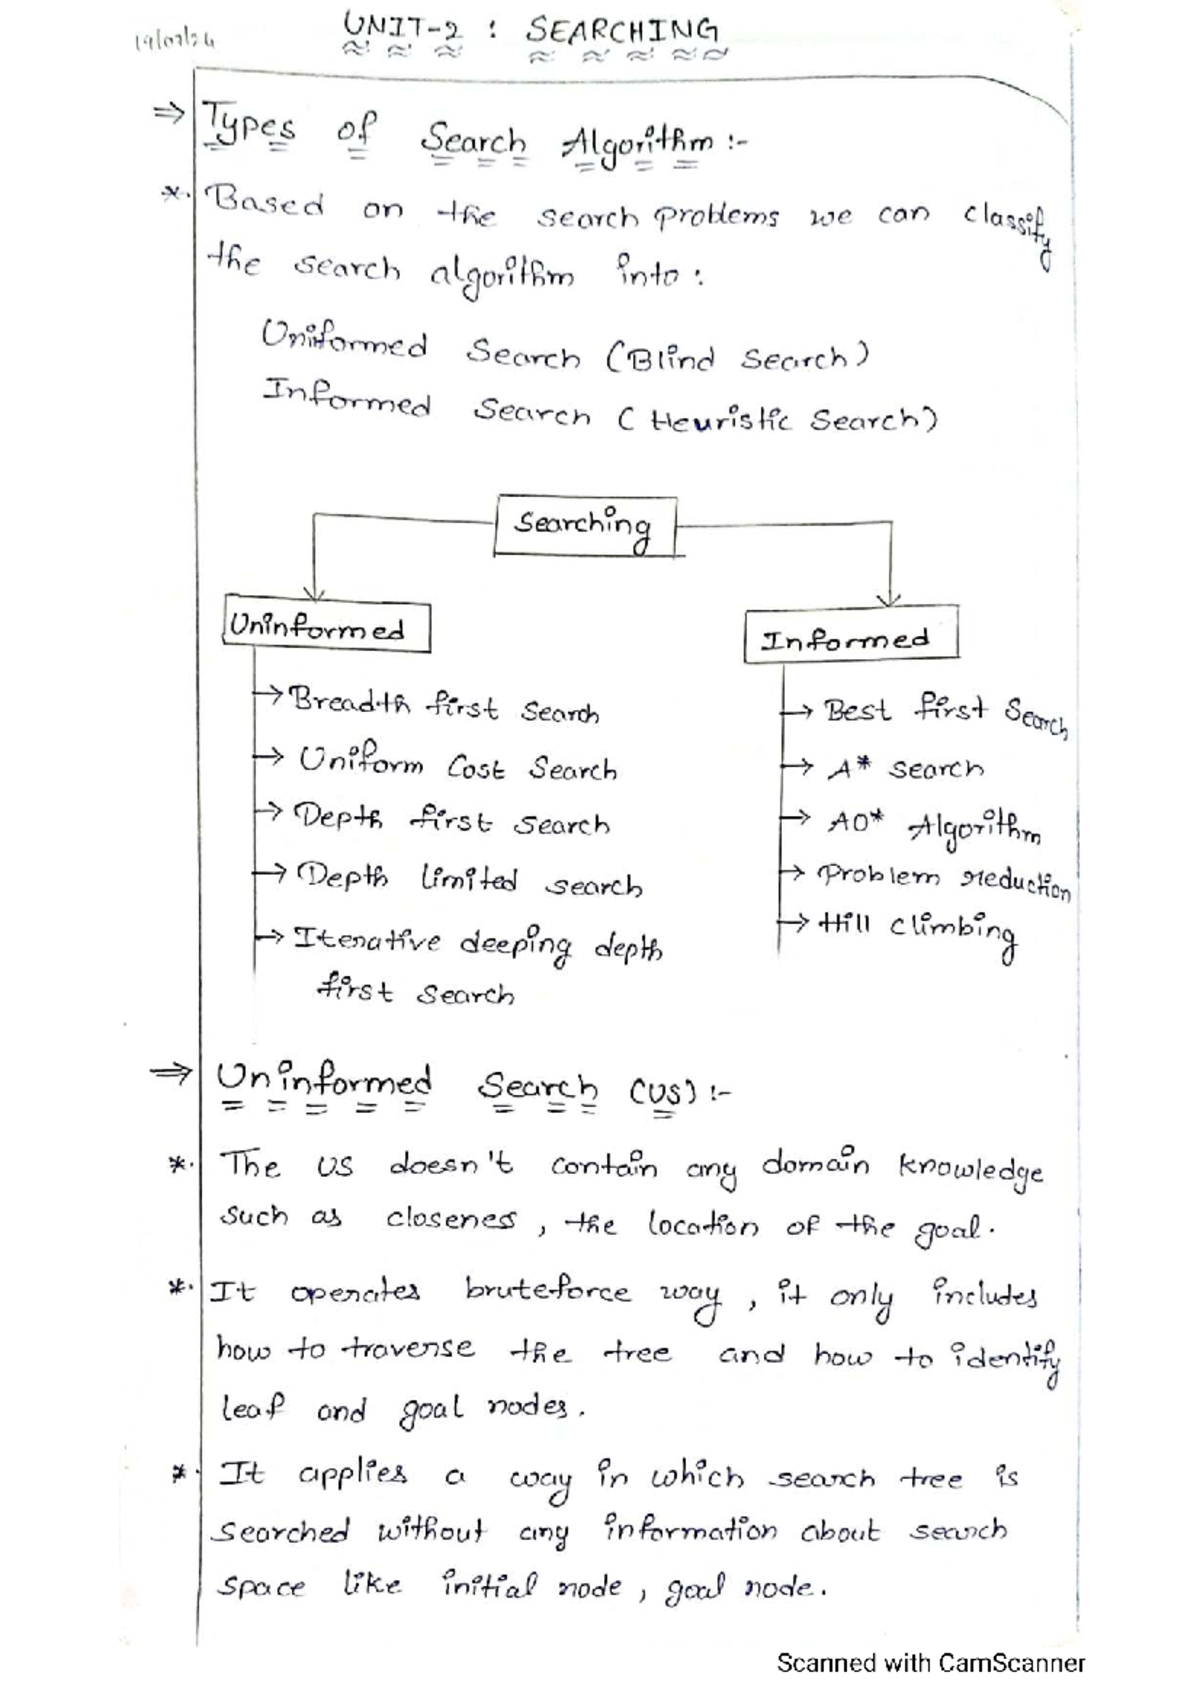 19/07/24
UNIT-2 : SEARCHING
⇒ Types of Search Algorithm :-
*. Based on the search problems we can classify
the search algorithm into :
Uniformed Search (Blind Search)
Informed Search ( Heuristic Search)
Searching
Uninformed
→ Breadth first Search
→ Uniform Cost Search
→ Depth first search
→ Depth limited search
→ Iterative deeping depth
first search
Informed
→ Best first Search
→ A* search
→ AO* Algorithm
→ Problem reduction
→ Hill climbing
⇒ Uninformed Search (US) :-
*. The US doesn't contain any domain knowledge
such as closeness , the location of the goal.
*. It operates bruteforce way , it only includes
how to traverse the tree and how to identify
leaf and goal nodes.
*. It applies a way in which search tree is
searched without any information about search
space like initial node , goal node.
Scanned with CamScanner